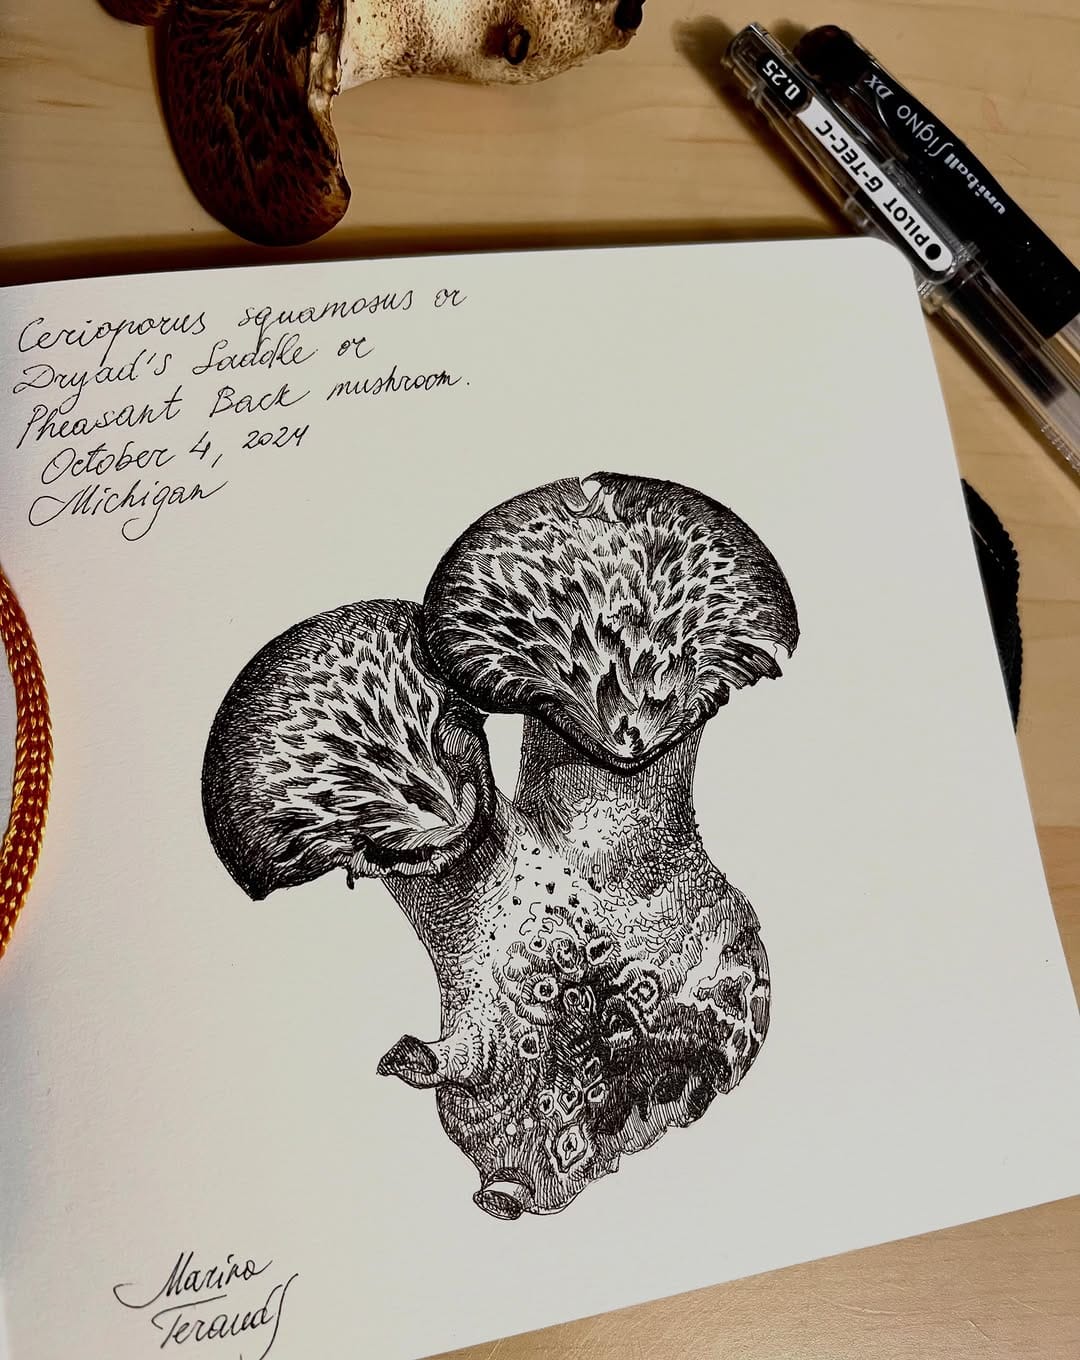 Cerioporus squamosus or
Dryad's Saddle or
Pheasant Back mushroom.
October 4, 2024
Michigan
0.25
PILOT G-TEC-C
uni-ball SigNO DX
Marina
Terauds